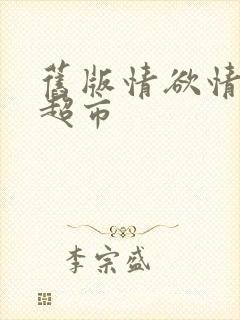 舊版情欲情
超市
李宗盛